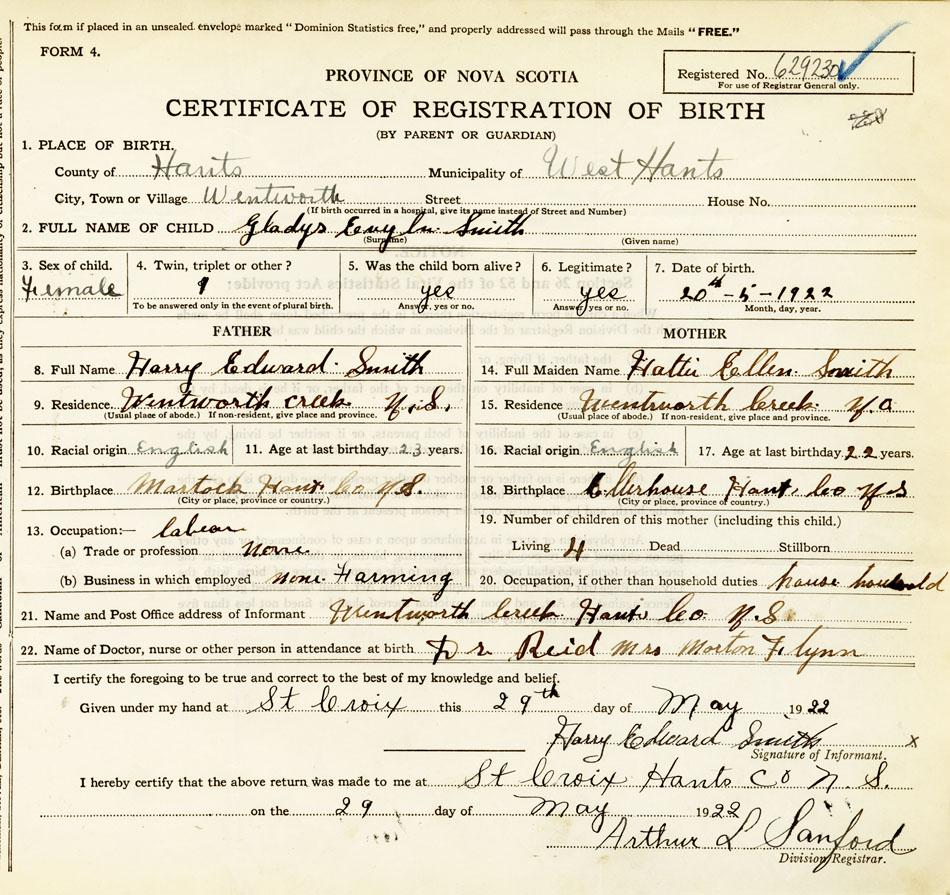 This form if placed in an unsealed envelope marked "Dominion Statistics free," and properly addressed will pass through the Mails "FREE."
FORM 4.
PROVINCE OF NOVA SCOTIA
Registered No. 629230
For use of Registrar General only.
CERTIFICATE OF REGISTRATION OF BIRTH
(BY PARENT OR GUARDIAN)
1. PLACE OF BIRTH.
County of Hants Municipality of West Hants
City, Town or Village Wentworth Street House No.
(If birth occurred in a hospital, give its name instead of Street and Number)
2. FULL NAME OF CHILD Gladys Evyln Smith
(Surname) (Given name)
3. Sex of child. 4. Twin, triplet or other? 5. Was the child born alive? 6. Legitimate? 7. Date of birth.
Female 1 yes yes 20th-5-1922
To be answered only in the event of plural birth. Answer, yes or no. Answer, yes or no. Month, day, year.
FATHER MOTHER
8. Full Name Harry Edward Smith 14. Full Maiden Name Hattie Ellen Smith
9. Residence. Wentworth creek N.S. 15. Residence Wentworth Creek
(Usual place of abode.) If non-resident, give place and province. (Usual place of abode.) If non-resident, give place and province.
10. Racial origin English 11. Age at last birthday 23 years. 16. Racial origin English 17. Age at last birthday 22 years.
12. Birthplace Martock Hant. Co N.S. 18. Birthplace Ellerhouse Hant. Co N S
(City or place, province or country.) (City or place, province or country.)
13. Occupation:— labear 19. Number of children of this mother (including this child.)
(a) Trade or profession none Living 4 Dead Stillborn
(b) Business in which employed none Farming 20. Occupation, if other than household duties house houshold
21. Name and Post Office address of Informant Wentworth Creek Hants Co N.S
22. Name of Doctor, nurse or other person in attendance at birth Dr Reid Mrs Morton Flynn
I certify the foregoing to be true and correct to the best of my knowledge and belief.
Given under my hand at St Croix this 29th day of May 1922
Harry Edward Smith x
Signature of Informant.
I hereby certify that the above return was made to me at St Croix Hants Co N. S.
on the 29 day of May 1922
Arthur L Sanford
Division Registrar.